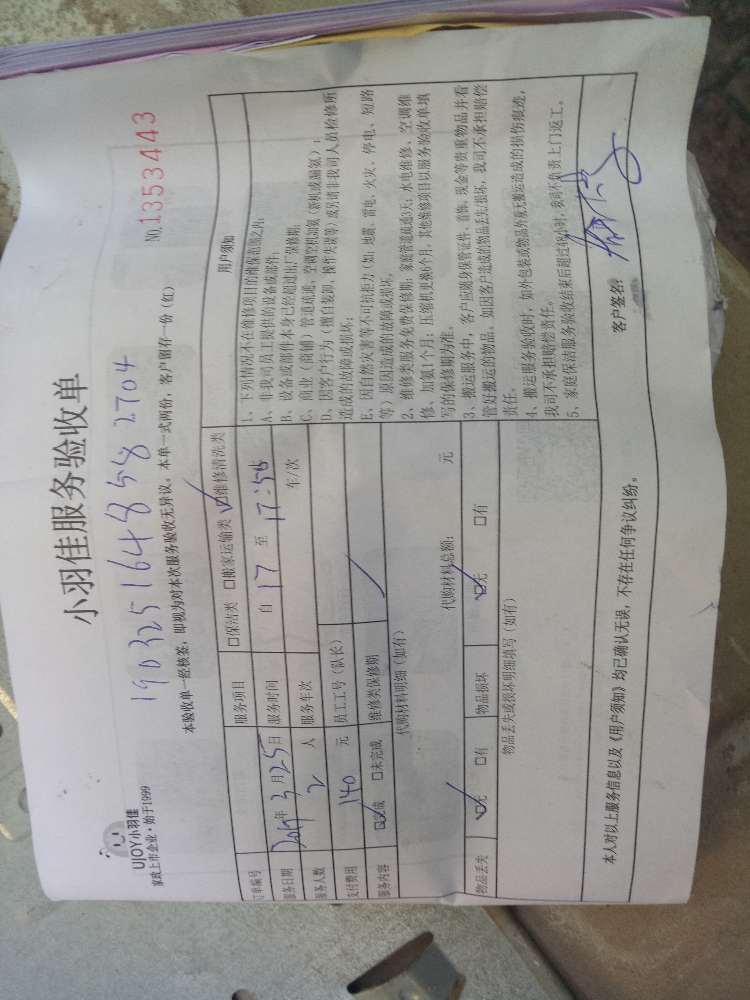 UJOY小羽佳
家政上市企业·始于1999
小羽佳服务验收单
NO. 1353443
190325164858 2704
本验收单一经核签，即视为对本次服务验收无异议。本单一式两份，客户留存一份（红）
订单编号
服务项目 □保洁类 □搬家运输类 ☑维修清洗类
服务日期 2019年3月25日 服务时间 自 17 至 17:56
服务人数 2 人 服务车次 车/次
支付费用 140 元 员工工号（队长）
服务内容 ☑完成 □未完成 维修类保修期
代购材料明细（如有）
代购材料总额： 元
物品丢失 ☑无 □有 物品损坏 ☑无 □有
物品丢失或损坏明细填写（如有）
用户须知
1、下列情况不在维修项目的维修范围之内：
A、非我司员工提供的设备或部件；
B、设备或部件本身已经超过出厂保修期；
C、商业（商铺）管道疏通、空调空机加氨（新机或漏氨）；
D、因客户行为（擅自装卸、操作失误等）或另请非我司人员检修所
造成的故障或损坏；
E、因自然灾害等不可抗拒力（如：地震、雷电、火灾、停电、短路
等）原因造成的故障或损坏。
2、维修类服务免费保修期：家庭管道疏通3天；水电维修、空调维
修、加氨1个月；压缩机更换6个月，其他维修项目以服务验收单填
写的保修期为准。
3、搬运服务中，客户应随身保管证件、首饰、现金等贵重物品并看
管好搬运的物品。如因客户造成的物品丢失/损坏，我司不承担赔偿
责任。
4、搬运服务验收时，如外包装或物品外观无搬运造成的损伤痕迹，
我司不承担赔偿责任。
5、家庭保洁服务验收结束后超过48小时，我司不负责上门返工。
本人对以上服务信息以及《用户须知》均已确认无误，不存在任何争议纠纷。
客户签名：